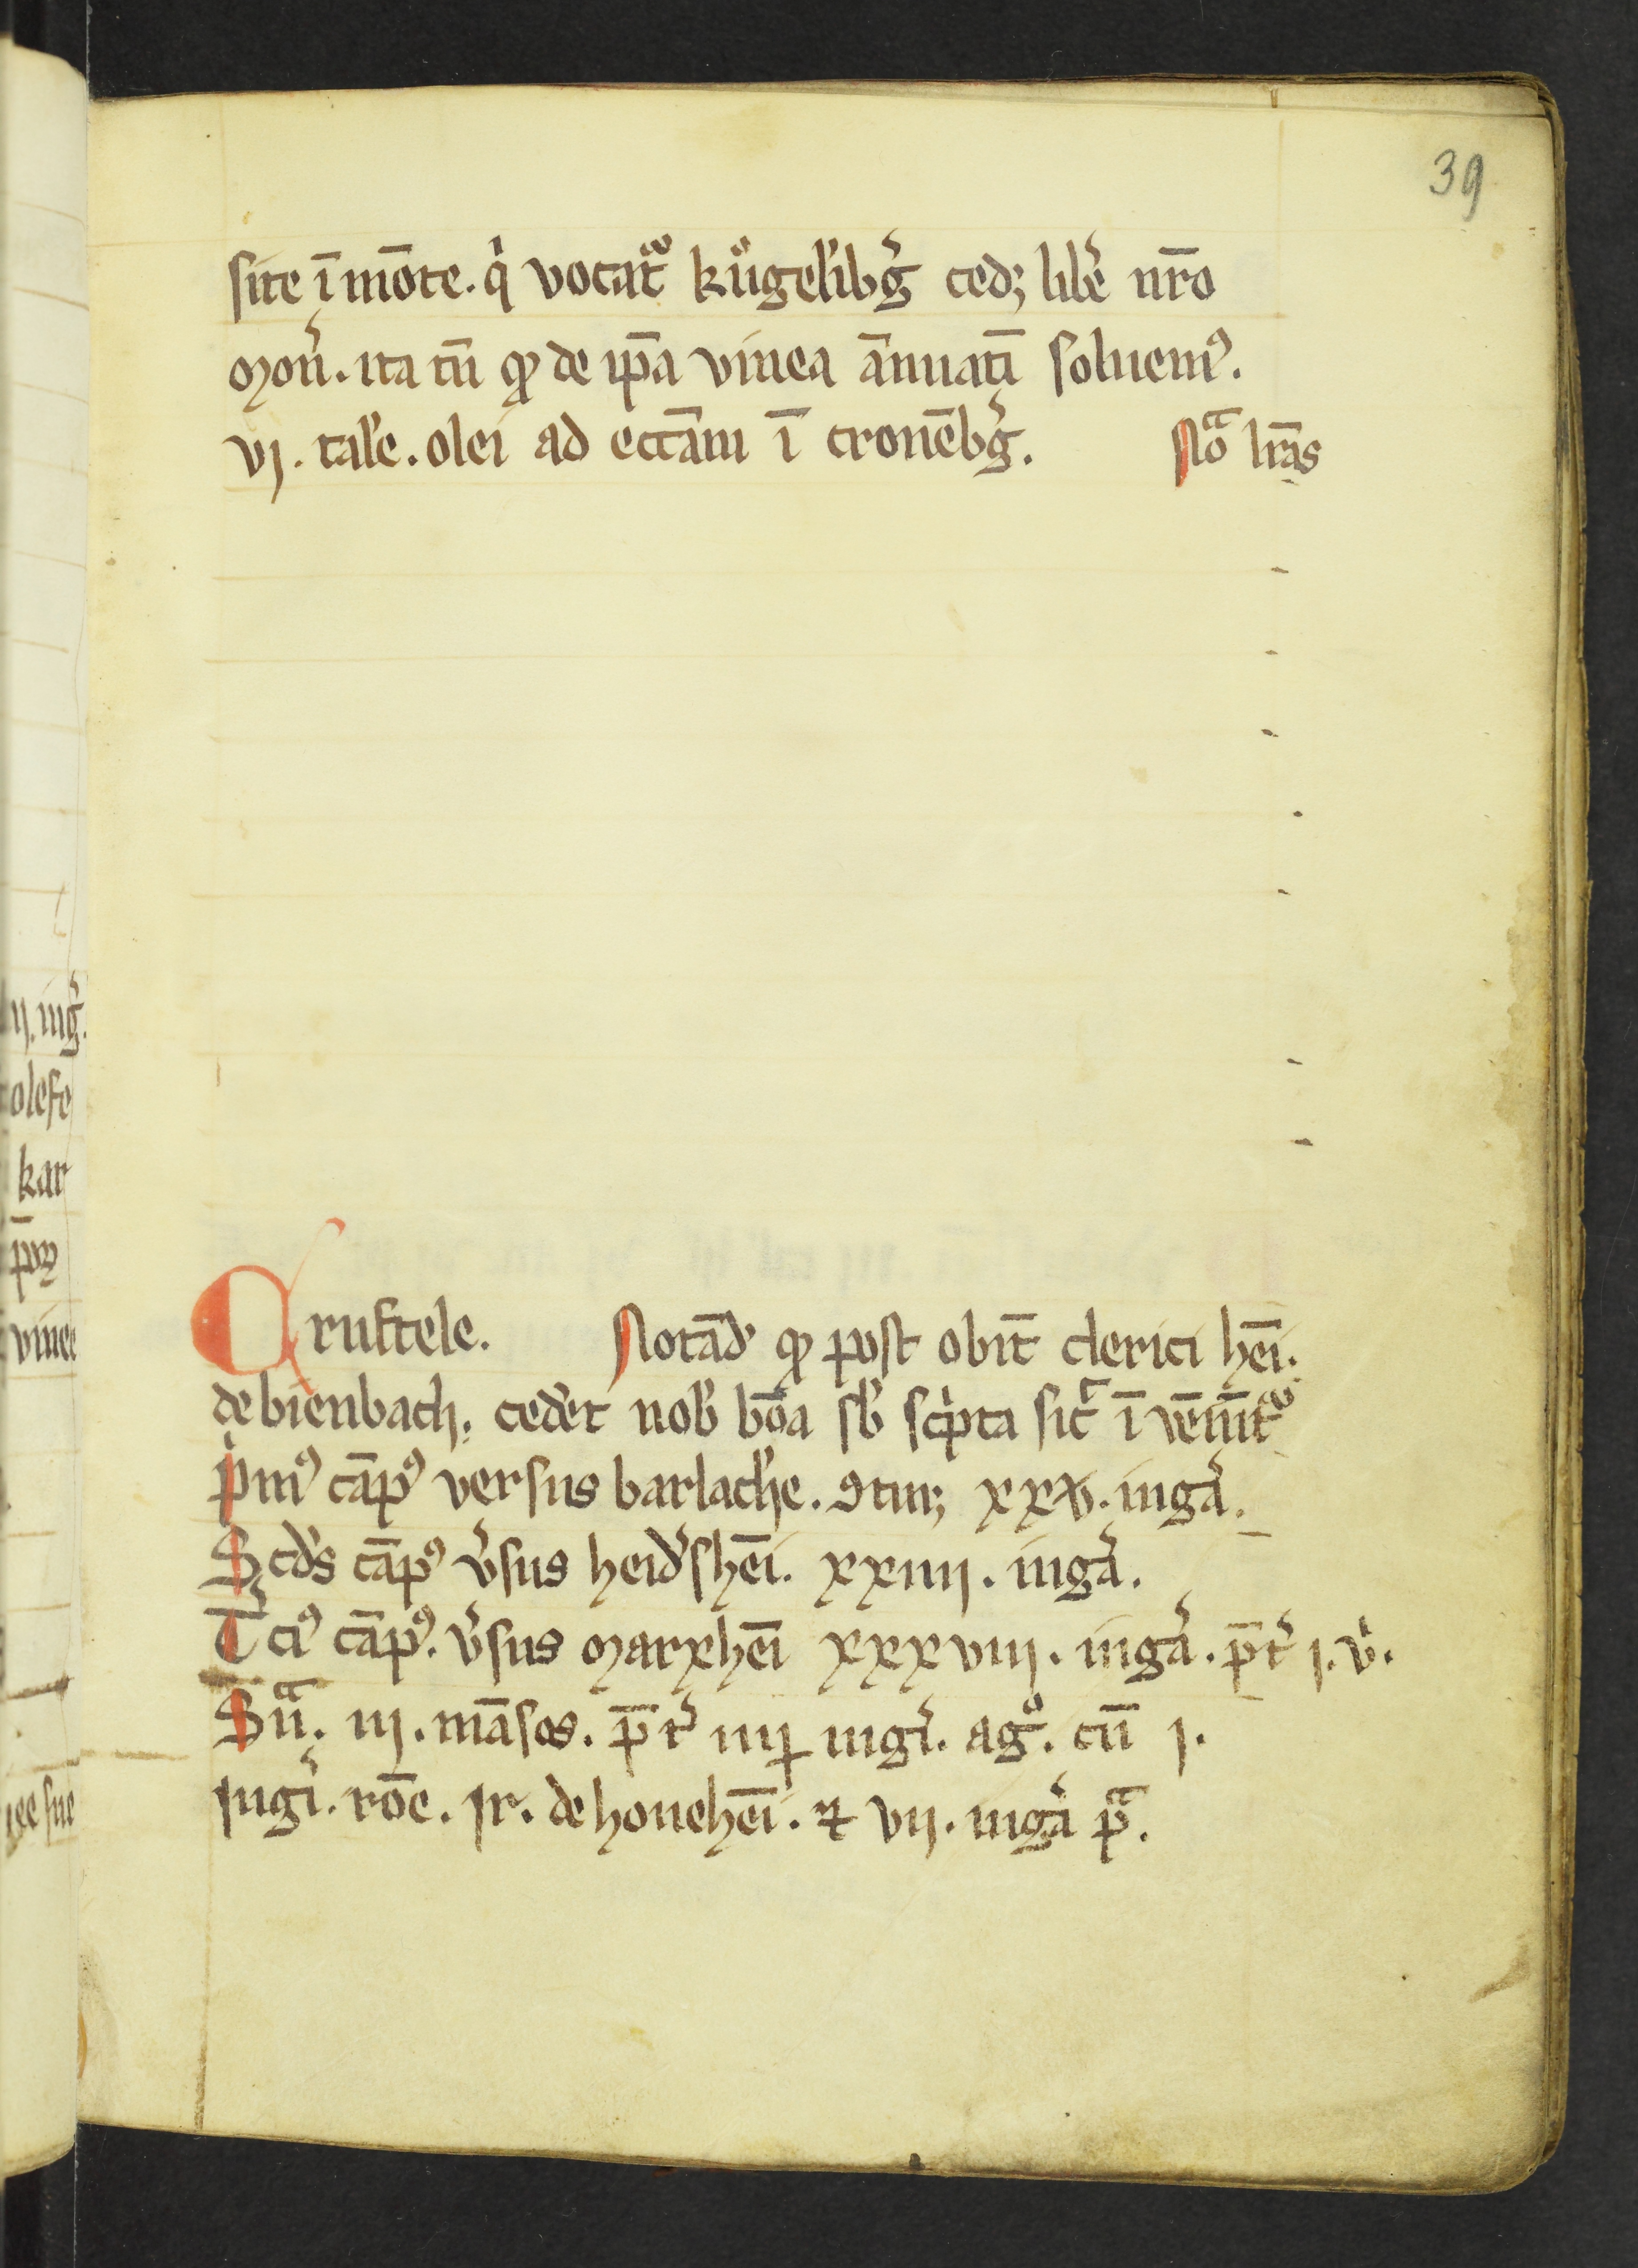 39
site ī mōte. qͥ vocat᷑ kůgelˀibg̾ cedꝫ libe̾ nr̄o
Mon̾. ita tn̄ ꝙ de ip̄a vinea ān̄uatī soluemꝰ.
vj. talˀe. olei ad ecc̄am ī cronēbg̾. Noͣ lr̄as
Cruftele. Notād̾ ꝙ post obit̄ clerici hēi.
de bienbach. ced̾et nob̾ bōa sb̾ scͥpta sic̾ ī vēiūt᷑
pͥmꝰ cāpꝰ versus barlach̾e. ꝯtinꝫ xxv. iuga̾.
Scd̾s cāpꝰ v̾sus heid̾shēi. xxiiij. iuga̾.
T̾ciꝰ cāpꝰ. v̾sus Marxhēi xxxviij. iuga̾. p̄t̾ j. v̾.
Sūͣ. iij. māsos. p̄t̾ iiij iugi̾. agͦ. cū j.
iugi̾. rōe. jr. de houehēi. ⁊ vij. iuga̾ pͣ.
ij. iug̾.
olefe
kar
vinee